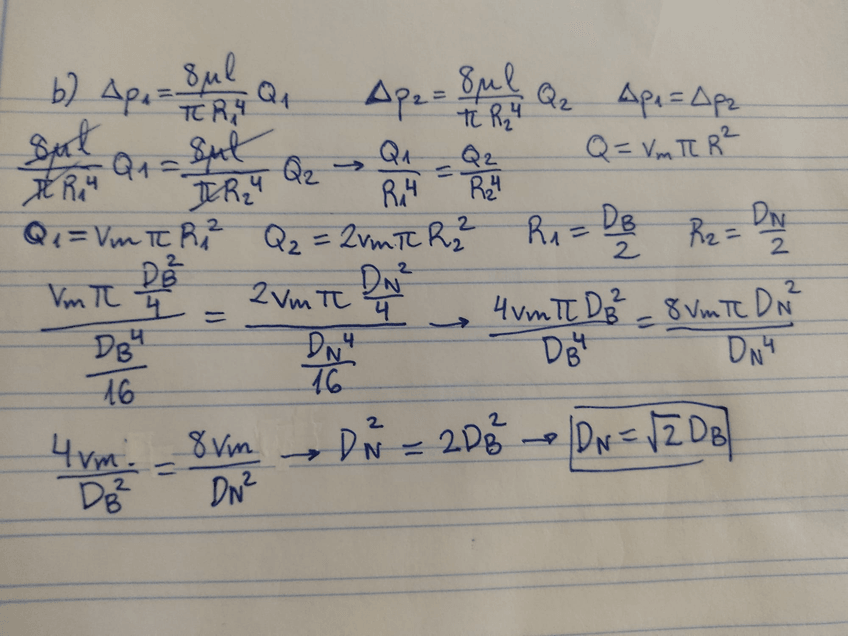 b) Δp₁ = 8μl/πR₁⁴ Q₁ Δp₂ = 8μl/πR₂⁴ Q₂ Δp₁ = Δp₂
8μl/πR₁⁴ Q₁ = 8μl/πR₂⁴ Q₂ → Q₁/R₁⁴ = Q₂/R₂⁴ Q = vₘπR²
Q₁ = vₘπR₁² Q₂ = 2vₘπR₂² R₁ = D_B/2 R₂ = D_N/2
(vₘπ D_B²/4)/(D_B⁴/16) = (2vₘπ D_N²/4)/(D_N⁴/16) → 4vₘπD_B²/D_B⁴ = 8vₘπD_N²/D_N⁴
4vₘ/D_B² = 8vₘ/D_N² → D_N² = 2D_B² → D_N = √2 D_B